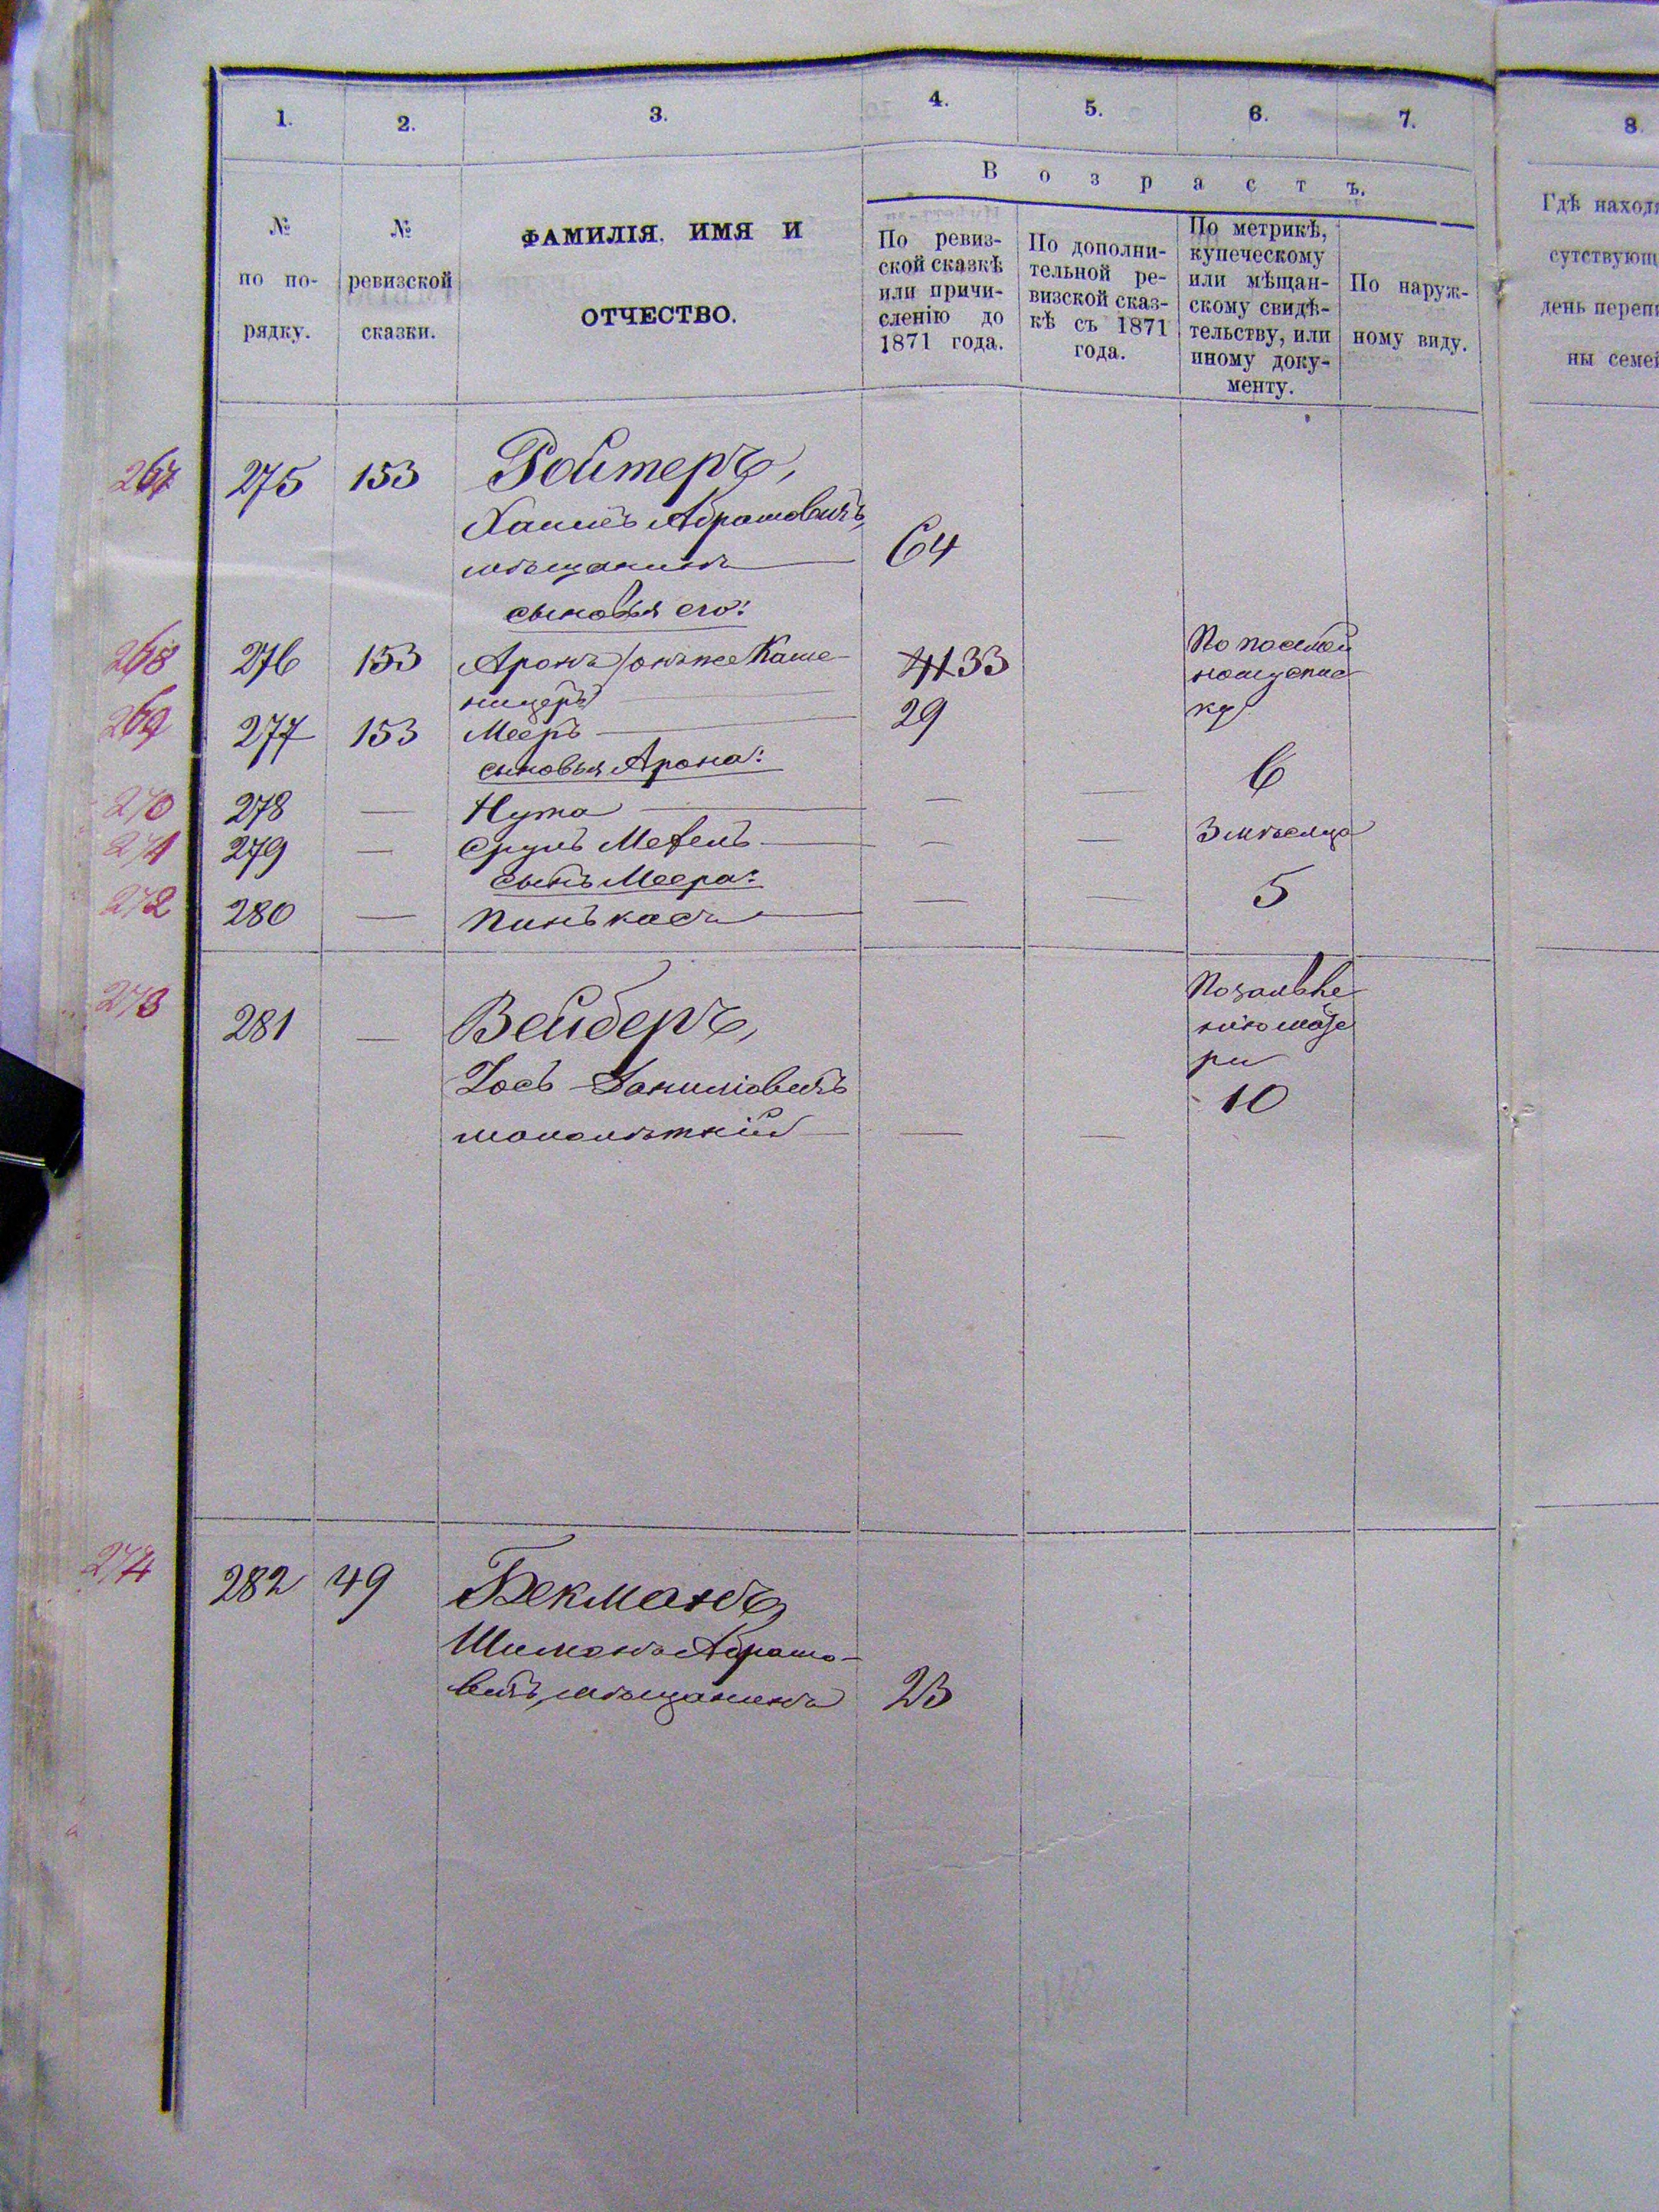 1. 2. 3. 4. 5. 6. 7. 8.
Возрастъ.
№
по по-
рядку.
№
ревизской
сказки.
ФАМИЛІЯ, ИМЯ И
ОТЧЕСТВО.
По ревиз-
ской сказкѣ
или причи-
сленію до
1871 года.
По дополни-
тельной ре-
визской сказ-
кѣ съ 1871
года.
По метрикѣ,
купеческому
или мѣщан-
скому свидѣ-
тельству, или
иному доку-
менту.
По наруж-
ному виду.
Гдѣ наход
сутствующ
день переп
ны семе
267 275 153 Ройтеръ,
Хаимъ Абрамовичъ,
мѣщанинъ 64
сыновья его:
268 276 153 Аронъ /онъ же Каше-
ницеръ 41 33 По посемей
ному списку
269 277 153 Мееръ 29
сыновья Арона:
270 278 — Нута — — 6
271 279 — Сруль — — 3 мѣсяца
сынъ Меера:
272 280 — Пинькасъ — — 5
273 281 — Вейберъ,
По заявле
нію мате
ри
Іось Даниловичъ
10
малолѣтній — —
274 282 49 Бекманъ,
Шимонъ Абрамо-
вичъ, мѣщанинъ 23